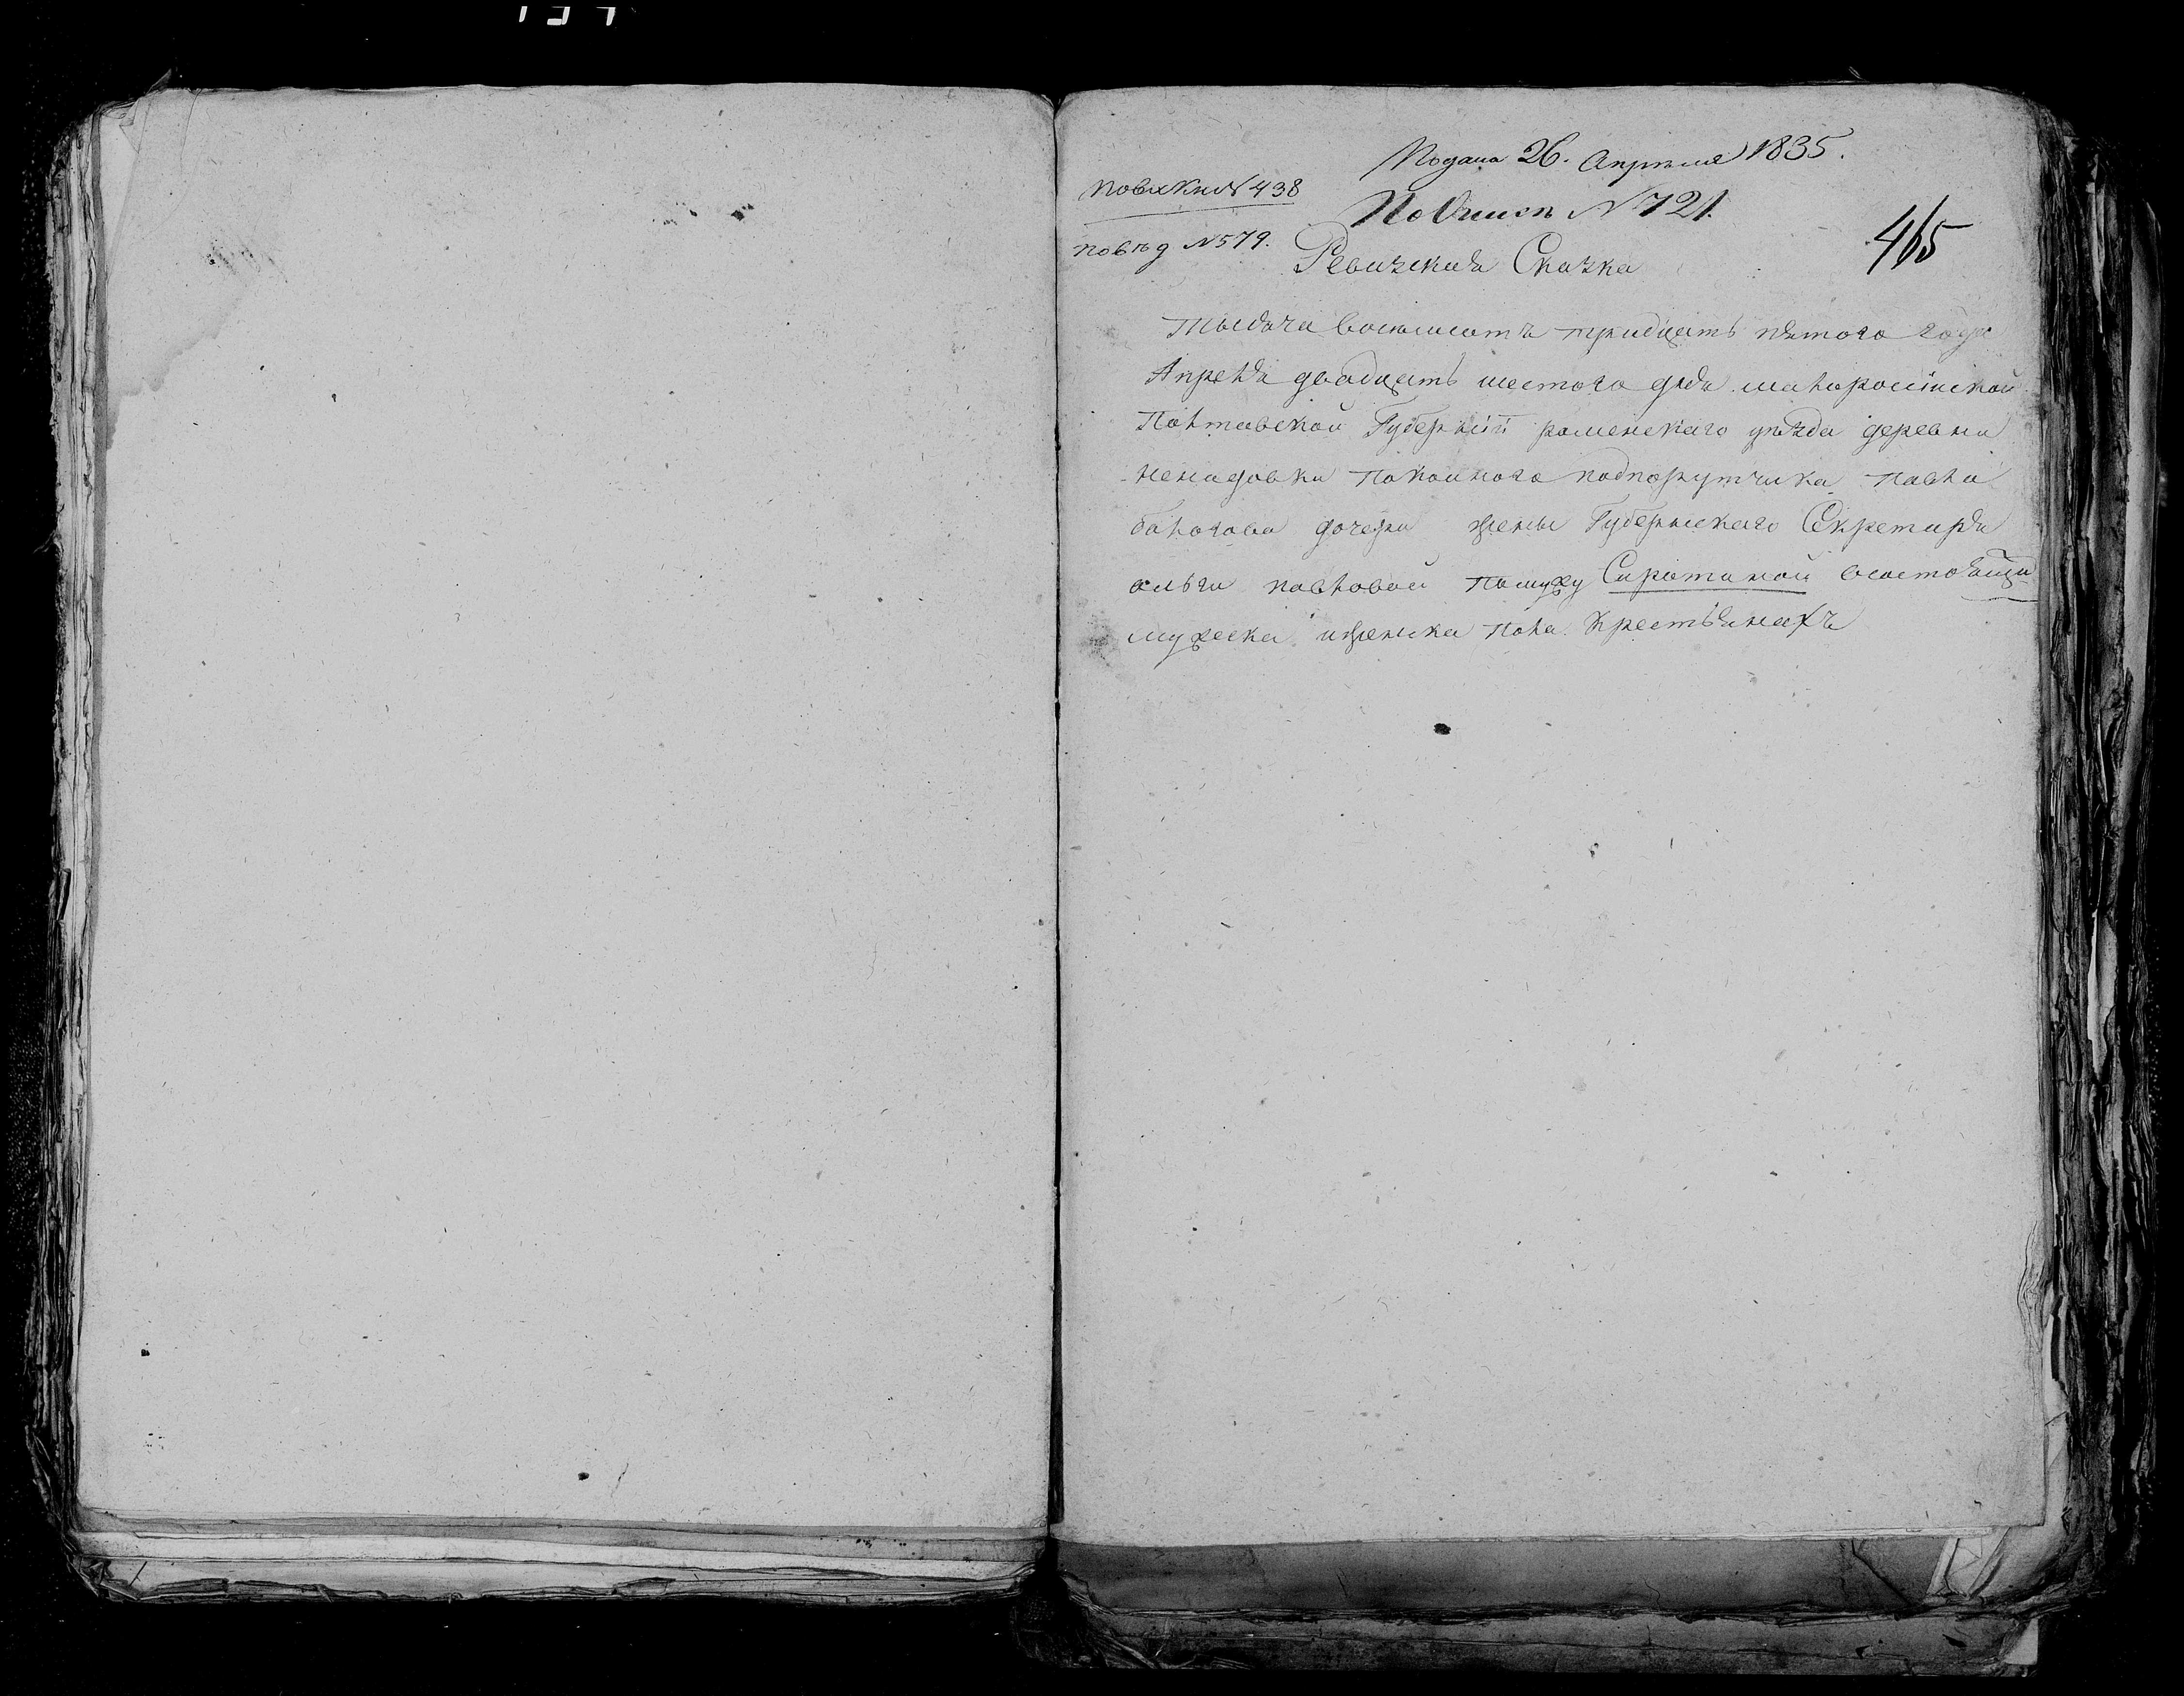 Подана 26. Апреля 1835.
По вх Кни N 438
По Описи N 721.
По вѣд N 579.
465
Ревизская Сказка
Тысяча восемсотъ тридцать пятого года
Апреля двадцать шестого дня малоросійской
Полтавской Губерніи роменскаго уѣзда деревни
ненадовки покоиного подпорутчика павла
болотова дочери жены Губернскаго Секретаря
ольги павловой помужу Сиротиной осостоящи
мужеска иженска пола крестьянахъ